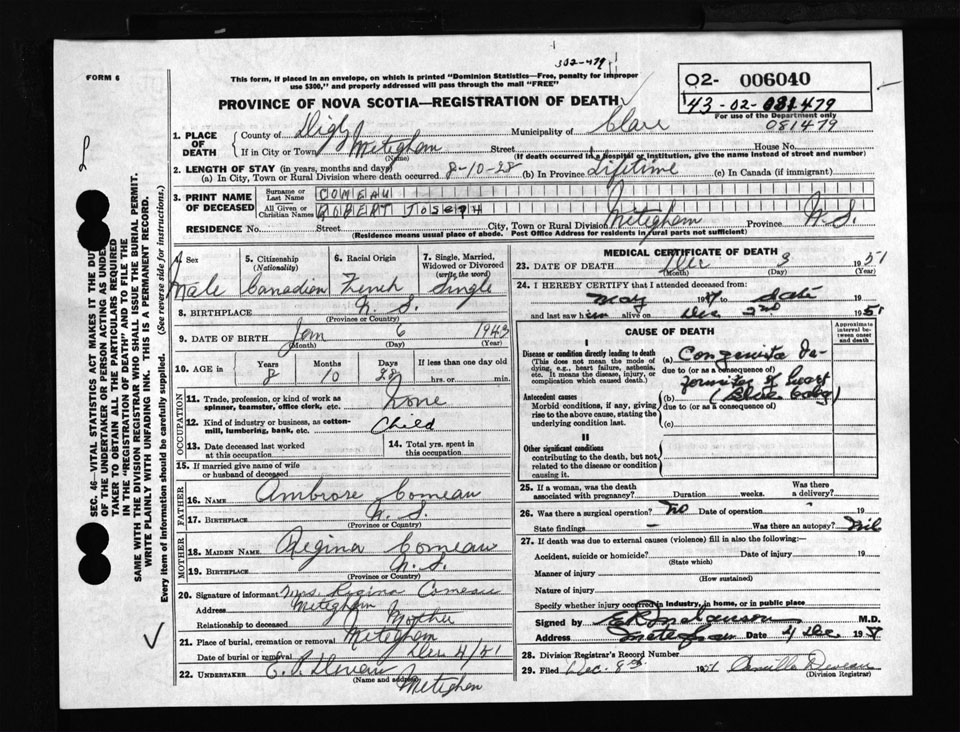 FORM 6
302-479
This form, if placed in an envelope, on which is printed "Dominion Statistics—Free, penalty for improper
use $300," and properly addressed will pass through the mail "FREE"
02- 006040
43-02-081479
For use of the Department only
081479
PROVINCE OF NOVA SCOTIA—REGISTRATION OF DEATH
1. PLACE OF DEATH
County of Digby Municipality of Clare
If in City or Town Meteghan Street House No.
(Name) (If death occurred in a hospital or institution, give the name instead of street and number)
2. LENGTH OF STAY (in years, months and days)
(a) In City, Town or Rural Division where death occurred 8-10-28 (b) In Province Lifetime (c) In Canada (if immigrant)
3. PRINT NAME OF DECEASED
Surname or Last Name COMEAU
All Given or Christian Names ROBERT JOSEPH
RESIDENCE No. Street City, Town or Rural Division Meteghan Province N.S.
(Residence means usual place of abode. Post Office Address for residents in rural parts not sufficient)
4. Sex Male
5. Citizenship (Nationality) Canadian
6. Racial Origin French
7. Single, Married, Widowed or Divorced (write the word) Single
8. BIRTHPLACE N.S.
(Province or Country)
9. DATE OF BIRTH Jan 6 1943
(Month) (Day) (Year)
10. AGE Years 8 Months 10 Days 28 If less than one day old hrs. or min.
OCCUPATION
11. Trade, profession, or kind of work as spinner, teamster, office clerk, etc. None
12. Kind of industry or business, as cotton-mill, lumbering, bank, etc. Child
13. Date deceased last worked at this occupation
14. Total yrs. spent in this occupation
15. If married give name of wife or husband of deceased
FATHER
16. NAME Ambrose Comeau
17. BIRTHPLACE N.S.
(Province or Country)
MOTHER
18. MAIDEN NAME Regina Comeau
19. BIRTHPLACE N.S.
(Province or Country)
20. Signature of informant Mrs. Regina Comeau
Address Meteghan
Relationship to deceased Mother
21. Place of burial, cremation or removal Meteghan
Date of burial or removal Dec 4/51
22. UNDERTAKER
(Name and address) Meteghan
MEDICAL CERTIFICATE OF DEATH
23. DATE OF DEATH Dec 3 1951
(Month) (Day) (Year)
24. I HEREBY CERTIFY that I attended deceased from:
May to date
and last saw him alive on Dec 2nd 1951
CAUSE OF DEATH
Approximate interval between onset and death
I
Disease or condition directly leading to death
(This does not mean the mode of dying, e.g., heart failure, asthenia, etc. It means the disease, injury, or complication which caused death.)
(a) Congenital De-
due to (or as a consequence of)
formities of heart
(b) (Blue baby)
Antecedent causes
Morbid conditions, if any, giving rise to the above cause, stating the underlying condition last.
due to (or as a consequence of)
(c)
II
Other significant conditions
contributing to the death, but not related to the disease or condition causing it.
25. If a woman, was the death associated with pregnancy? Duration weeks. Was there a delivery?
26. Was there surgical operation? no Date of operation 19
State findings — Was there an autopsy? Nil
27. If death was due to external causes (violence) fill in also the following:—
Accident, suicide or homicide? Date of injury 19
(State which)
Manner of injury
(How sustained)
Nature of injury
Specify whether injury occurred in industry, in home, or in public place
Signed by M.D.
Address Meteghan Date 4 Dec 19
28. Division Registrar's Record Number
29. Filed Dec. 8th 1951
(Division Registrar)
SEC. 46—VITAL STATISTICS ACT MAKES IT THE DUTY
OF THE UNDERTAKER OR PERSON ACTING AS UNDER-
TAKER TO OBTAIN ALL THE PARTICULARS REQUIRED
IN THE "REGISTRATION OF DEATH" AND TO FILE THE
SAME WITH THE DIVISION REGISTRAR WHO SHALL ISSUE THE BURIAL PERMIT.
WRITE PLAINLY WITH UNFADING INK. THIS IS A PERMANENT RECORD.
Every item of information should be carefully supplied. (See reverse side for instructions.)